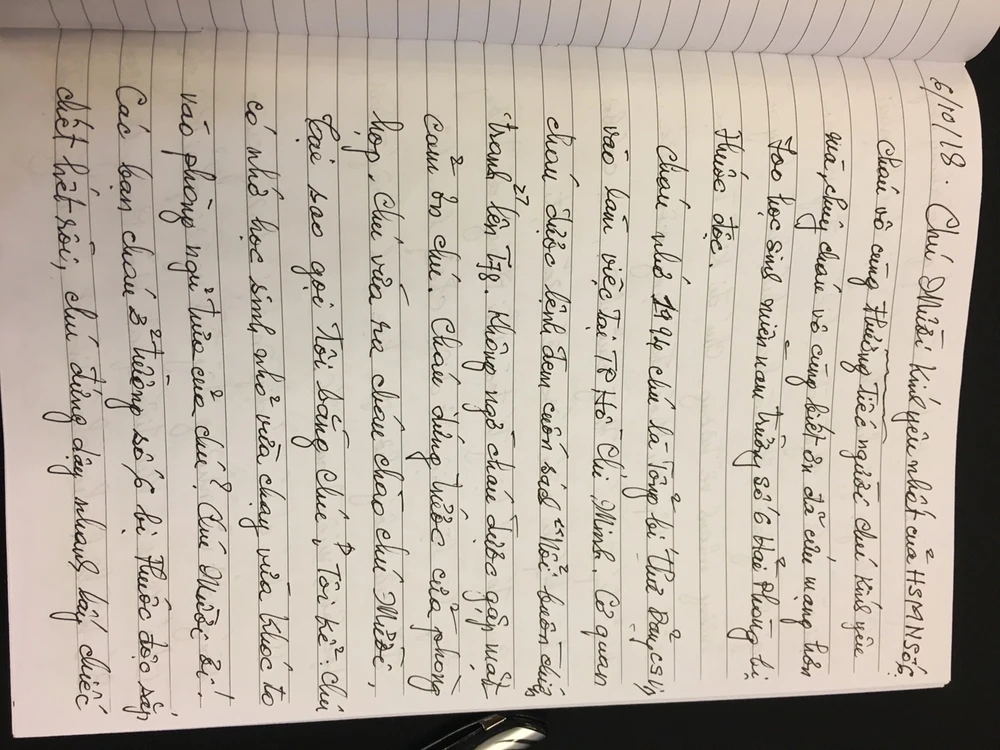 6/10/18. Chú Mười kính yêu nhất của HSMN Số 6.
Cháu vô cùng thương tiếc người chú kính yêu
mà chúng cháu vô cùng biết ơn đã cứu mạng hơn
700 học sinh miền nam trường số 6 Hải Phòng bị
thuốc độc.
Cháu nhớ 1994 chú là Tổng bí thư Đảng CS
vào làm việc tại TP Hồ Chí Minh. Cơ quan
cháu được lệnh đem cuốn sách "Nỗi buồn chiến
tranh" lên T78. Không ngờ cháu được gặp mặt
cảm ơn chú. Cháu đứng trước cửa phòng
họp, chú vừa ra cháu chào chú Mười,
tại sao gọi tôi bằng chú? Tôi kể: chú
có nhớ học sinh nhỏ vừa chạy vừa khóc to
vào phòng ngủ trưa của chú? Chú Mười ơi!
Các bạn cháu ở trường số 6 bị thuốc độc sắp
chết hết rồi, chú đứng dậy nhanh, lấy chiếc